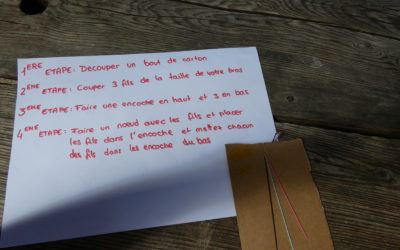 1ERE ETAPE: Découper un bout de carton
2EME ETAPE: Couper 3 fils de la taille de votre bras
3EME ETAPE: Faire une encoche en haut et 3 en bas
4EME ETAPE: Faire un nœud avec les fils et placer
les fils dans l'encoche et mettez chacun
des fils dans les encoche du bas